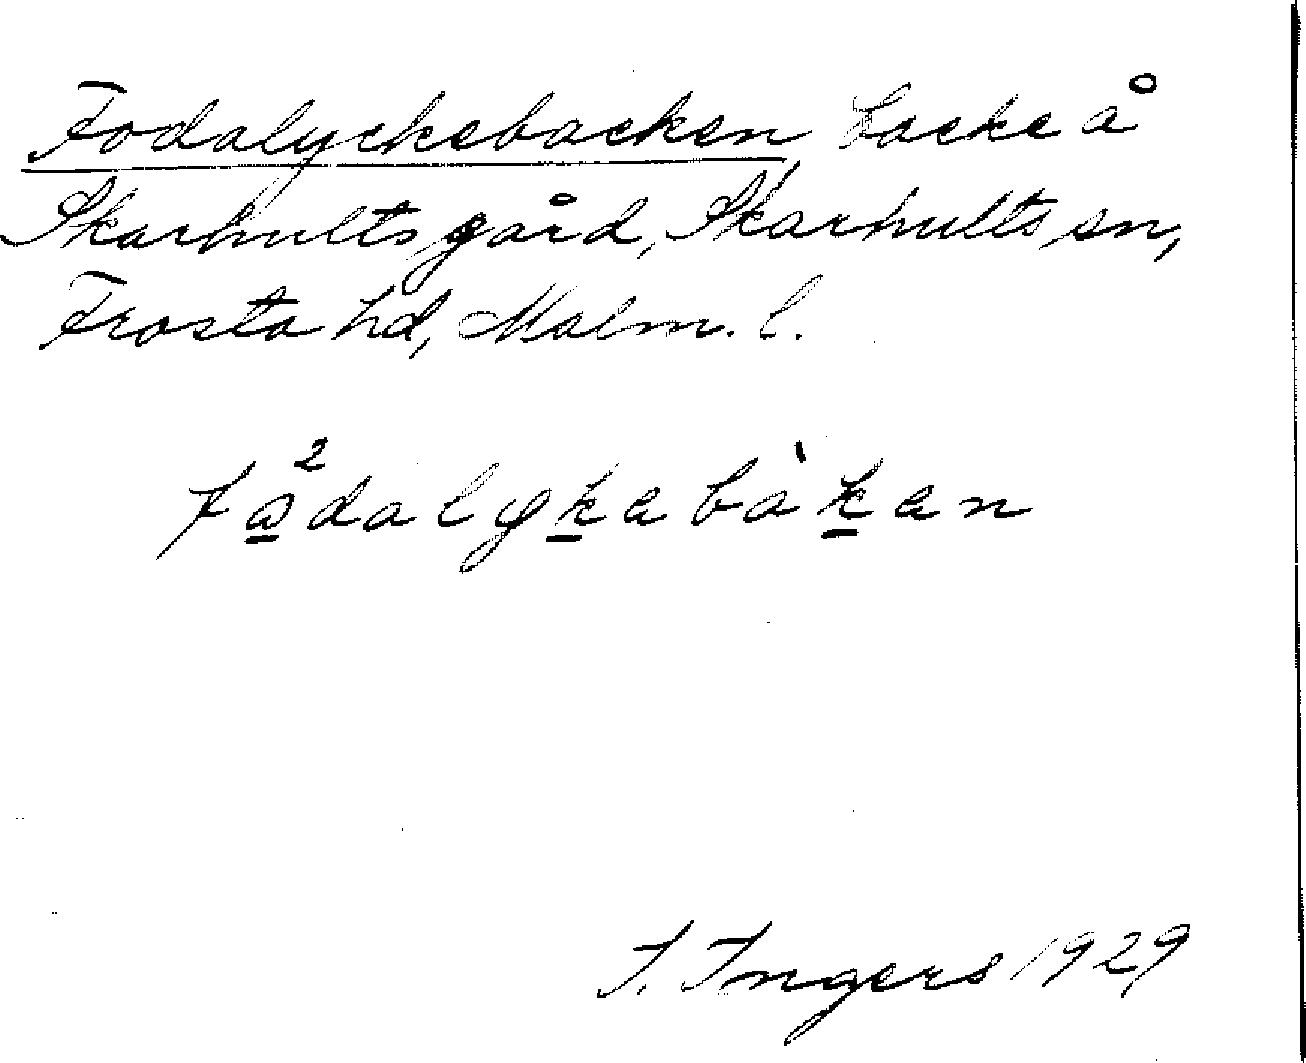 Fodalyckebacken, backe å
Skarhults gård, Skarhults sn,
Frosta hd, Malm. l.
fa²dalykebàken
I. Ingers 1929